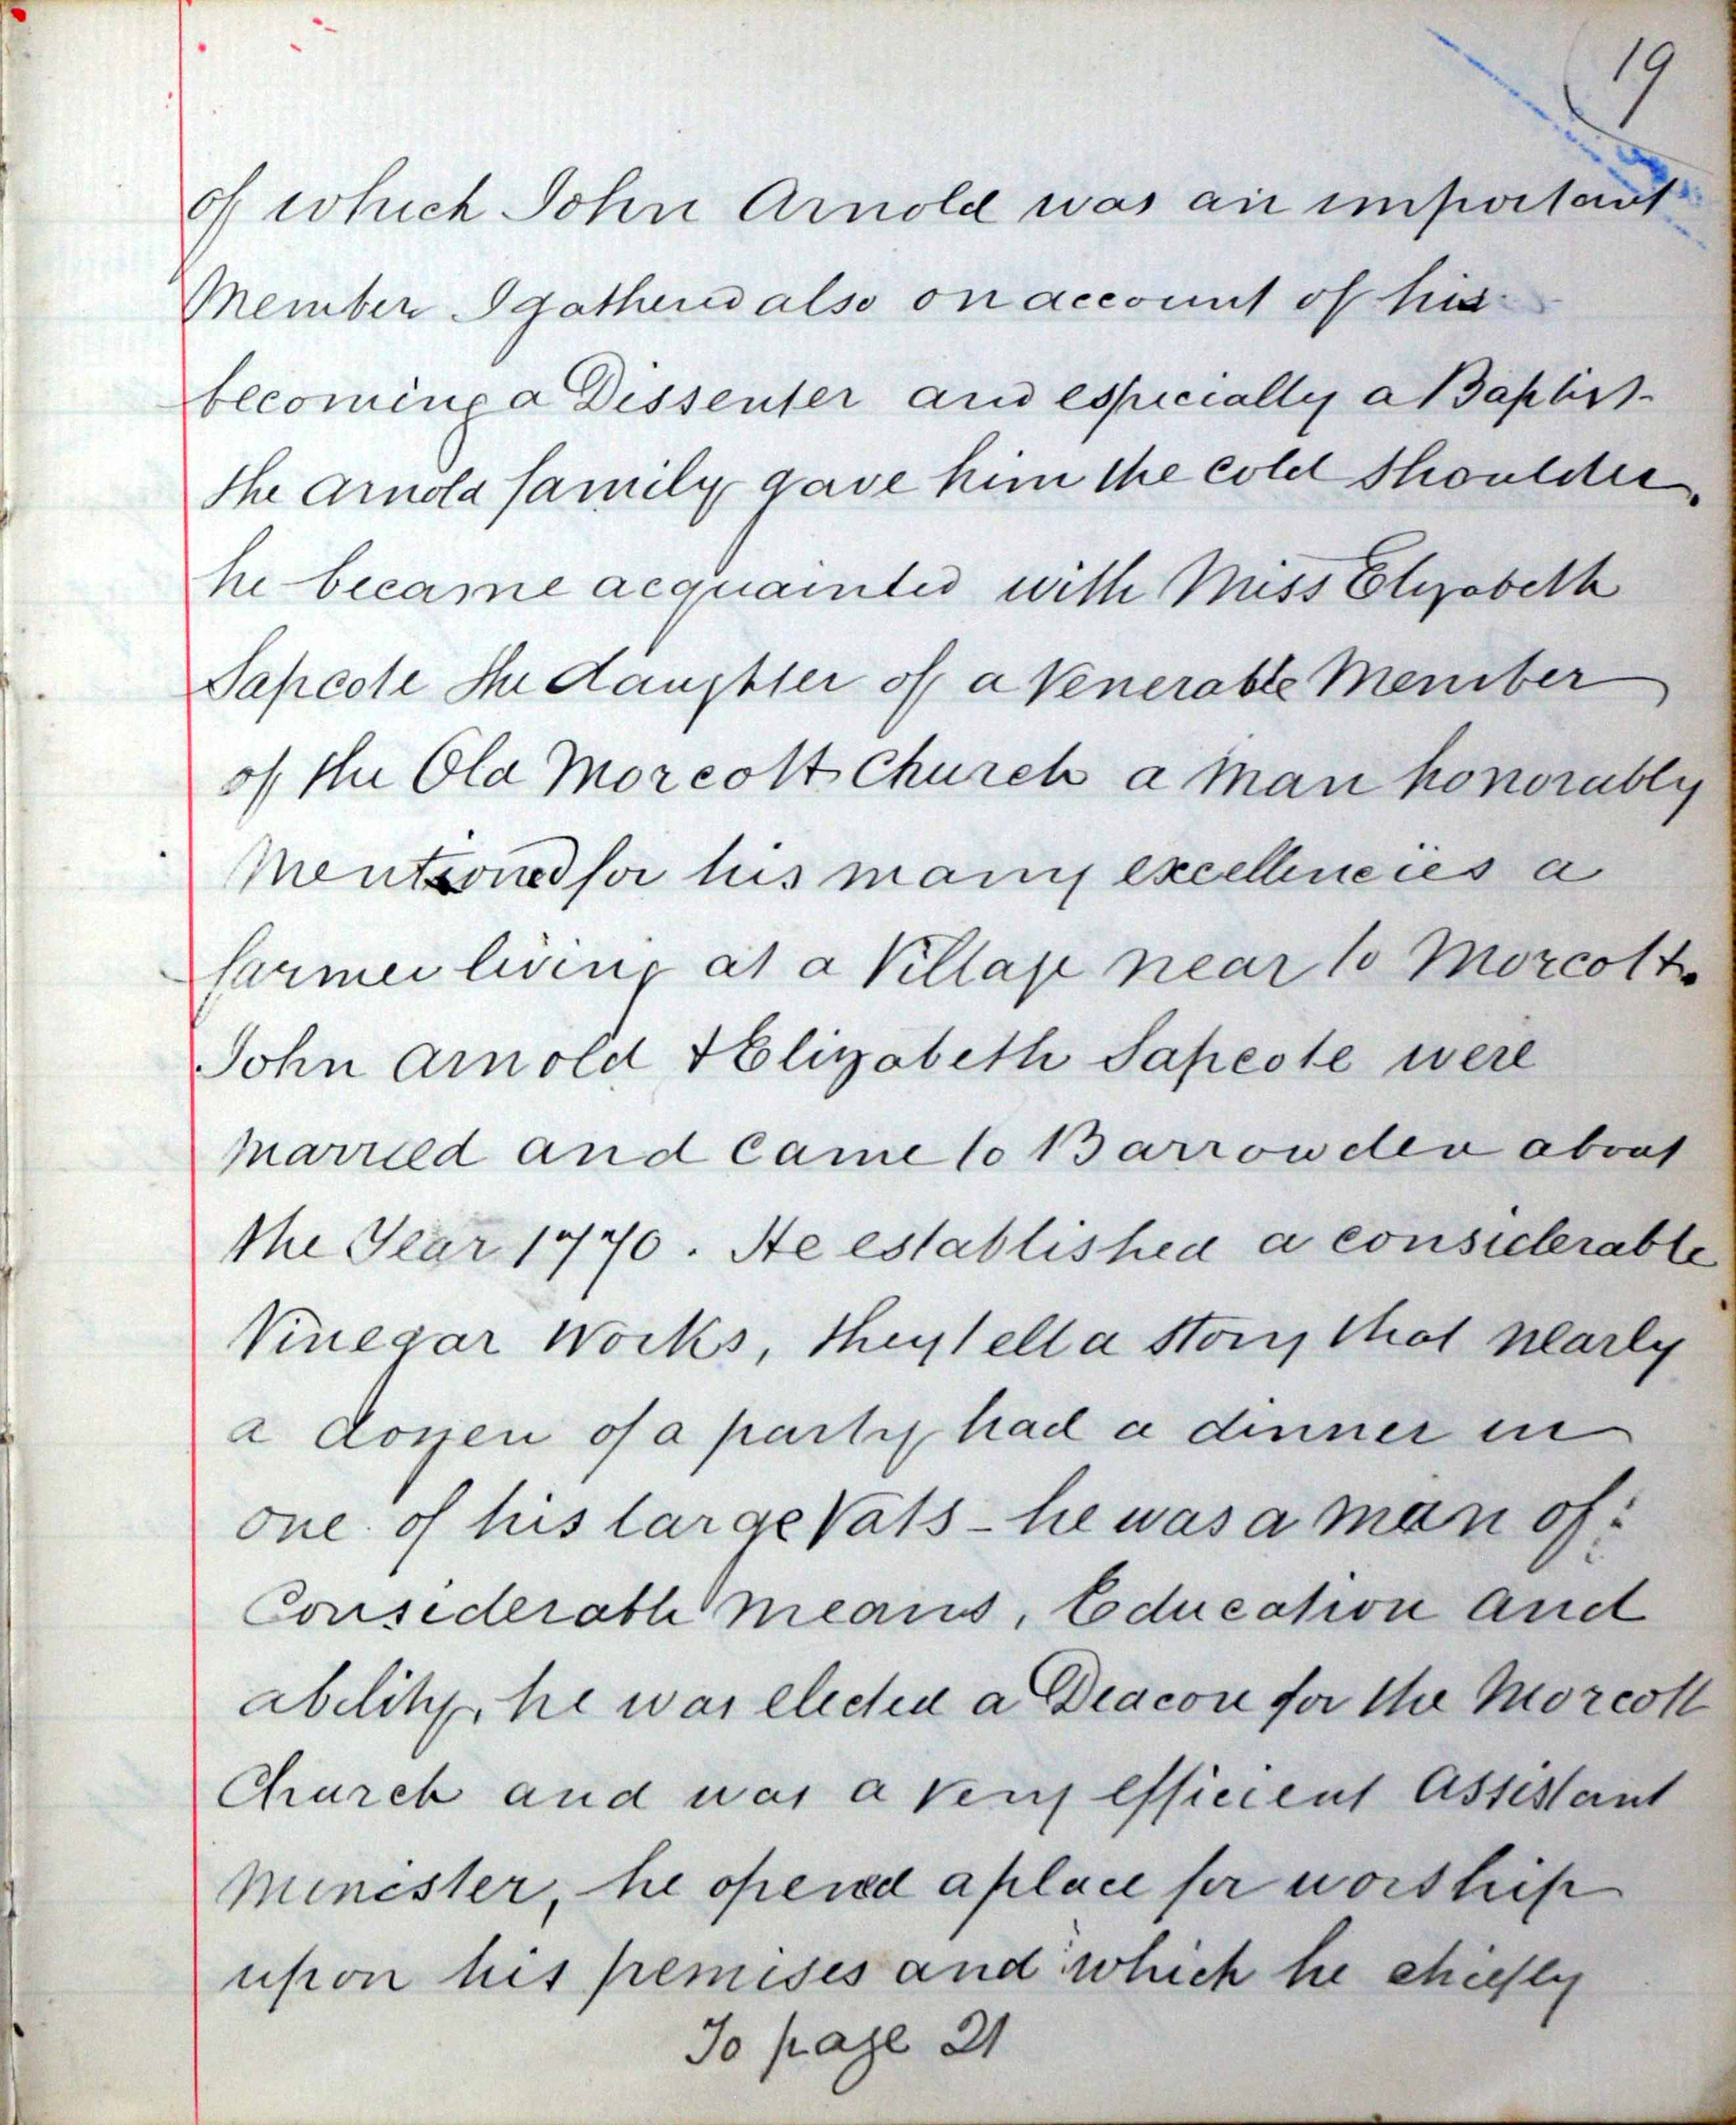 19
of which John Arnold was an important
Member I gathered also on account of his
becoming a Dissenter and especially a Baptist-
the Arnold family gave him the cold Shoulder.
he became acquainted with Miss Elizabeth
Sapcote the daughter of a Venerable Member
of the Old Morcott Church a Man honorably
Mentioned for his many excellencies a
farmer living at a Village near to Morcott.
John Arnold & Elizabeth Sapcote were
Married and Came to Barrowden about
the Year 1770. He established a considerable
Vinegar Works, they tell a Story that nearly
a dozen of a party had a dinner in
one of his large Vats - he was a man of
Considerable means, Education and
ability, he was elected a Deacon for the Morcott
Church and was a Very efficient Assistant
Minister, he opened a place for worship
upon his pemises and which he chiefly
To page 21